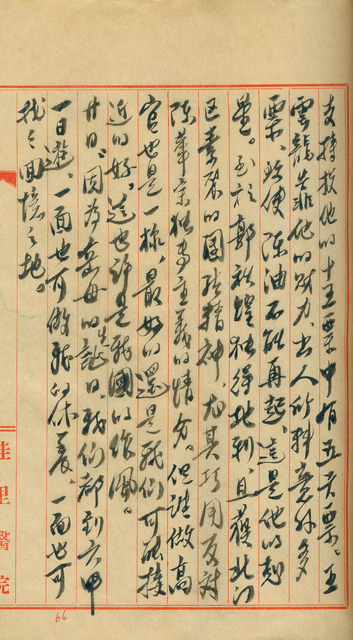 支持投他的十五票中有五六票。王
雲龍靠他的財力，出人所料意外多
票，致使陳油不能再起，這是他的
量。至於郭秋煌獨得北到，且獲北門
區素來的團結精神，尤其巧用反對
陳華宗獨事主義的情分。但誰做高
官也是一樣，最好的還是我們可能接
近的好，這也許是我國的作風。
廿日，因為岳母的生誕日，我們都到六甲
一日遊，一面也可做我的休養，一面也可
找之回憶之地。
佳里醫院
66